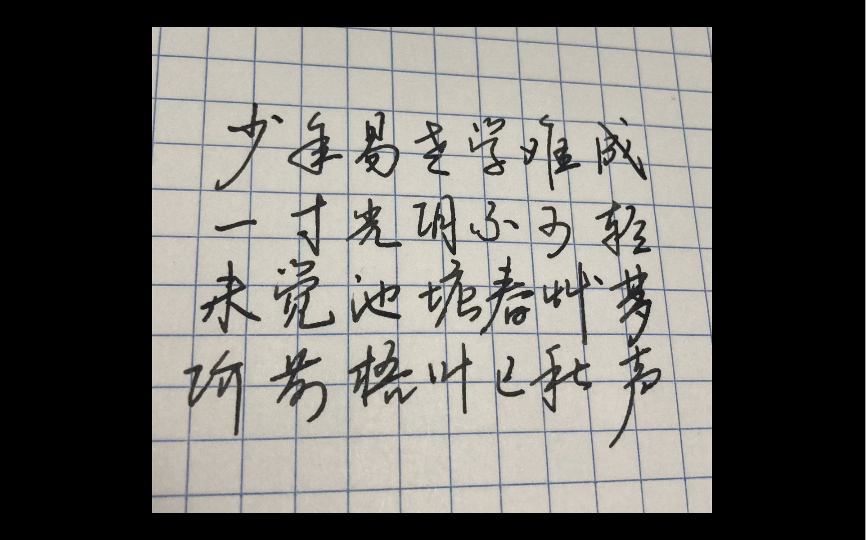 少年易老学难成
一寸光阴不可轻
未觉池塘春艸梦
阶前梧叶已秋声